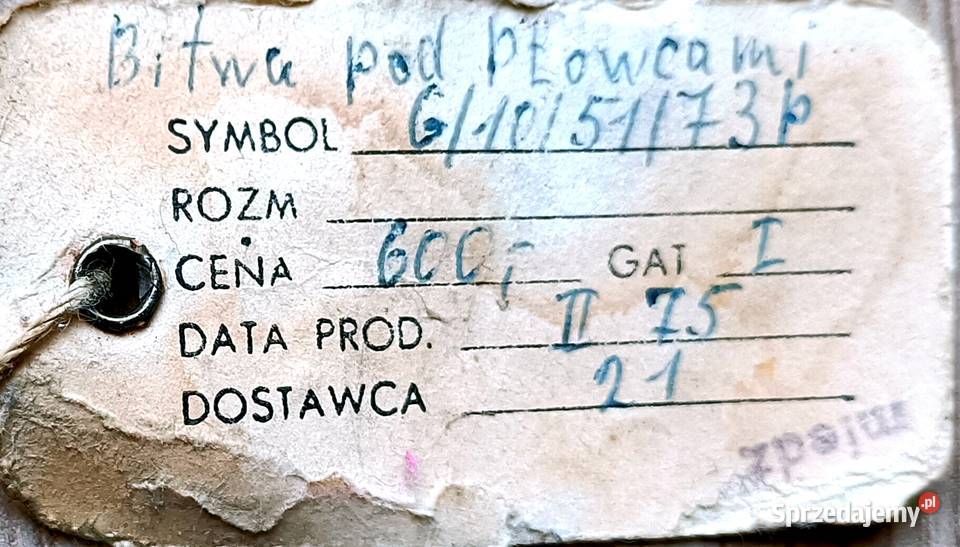 Bitwa pod Płowcami
SYMBOL G/10/51/73p
ROZM
CENA 600,- GAT I
DATA PROD. II 75
DOSTAWCA 21
Sprzedajemy.pl